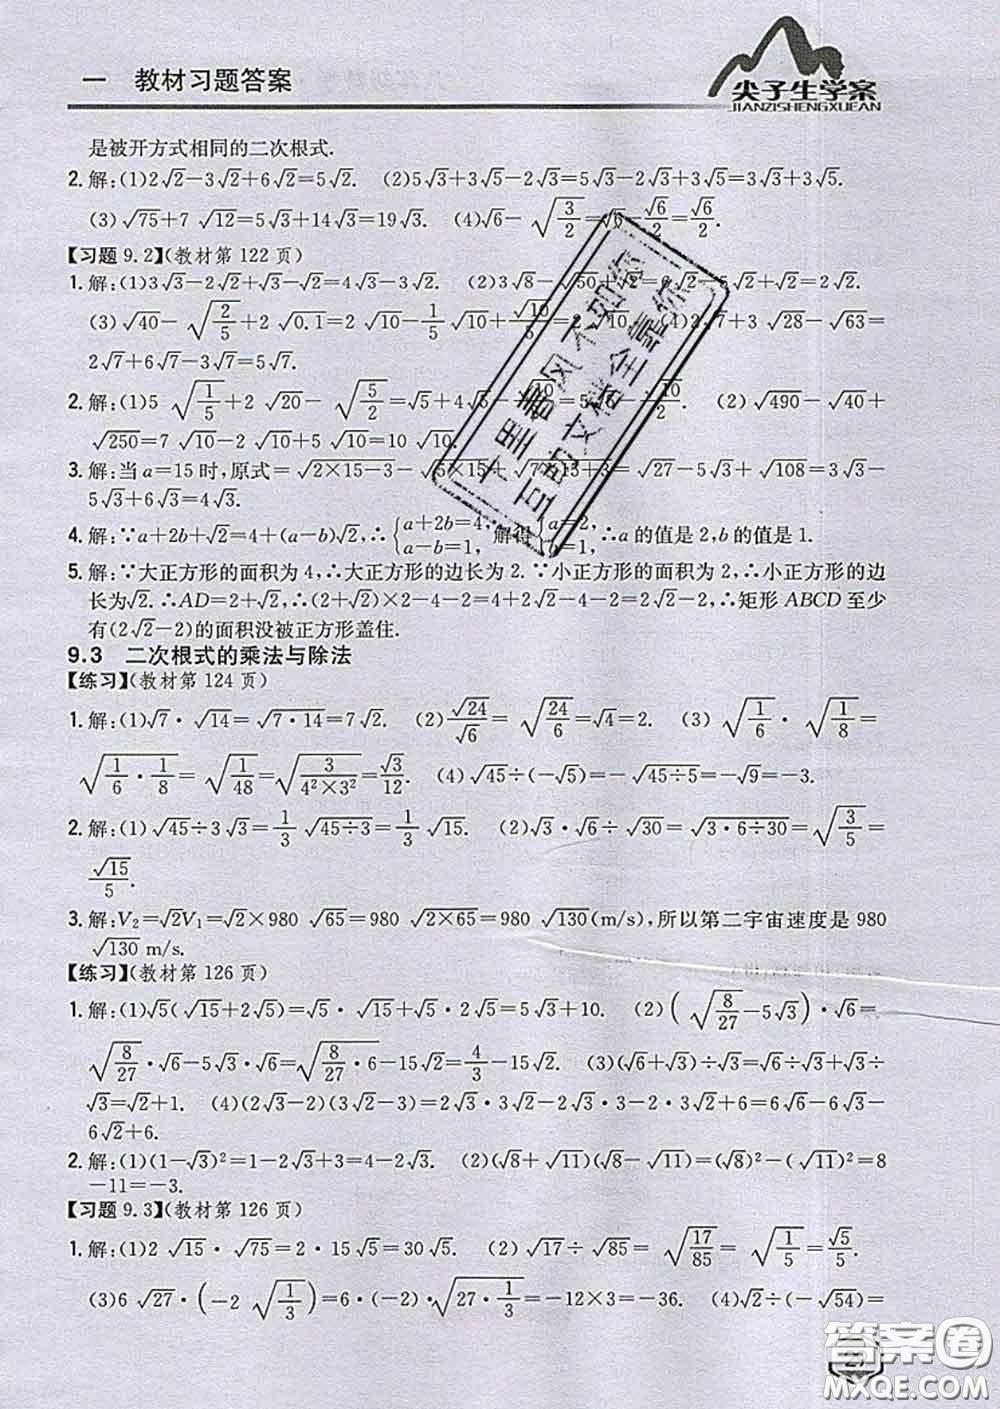 一 教材习题答案
尖子生学案
JIANZISHENGXUEAN
是被开方式相同的二次根式.
2.解:(1)2√2-3√2+6√2=5√2. (2)5√3+3√5-2√3=5√3-2√3+3√5=3√3+3√5.
(3)√75+7√12=5√3+14√3=19√3. (4)√6-√(3/2)=√6-√6/2=√6/2.
【习题9.2】(教材第122页)
1.解:(1)3√3-2√2+√3-√2=4√3-3√2. (2)3√8-√50+√2=6√2-5√2
(3)√40-√(2/5)+2√0.1=2√10-1/5√10+√10/5=2√10. (4)2√7+3√28-√63=
2√7+6√7-3√7=5√7.
2.解:(1)5√(1/5)+2√20-√(5/2)=√5+4√5-√10/2=5√5-√10/2. (2)√490-√40+
√250=7√10-2√10+5√10=10√10.
3.解:当a=15时,原式=√(2×15-3)-√(5×15)+√(7×15+3)=√27-5√3+√108=3√3-
5√3+6√3=4√3.
4.解:∵a+2b+√2=4+(a-b)√2,∴{a+2b=4, a-b=1, 解得{a=2, b=1, ∴a的值是2,b的值是1.
5.解:∵大正方形的面积为4,∴大正方形的边长为2.∵小正方形的面积为2,∴小正方形的边
长为√2.∴AD=2+√2,∴(2+√2)×2-4-2=4+2√2-4-2=2√2-2,∴矩形ABCD至少
有(2√2-2)的面积没被正方形盖住.
9.3 二次根式的乘法与除法
【练习】(教材第124页)
1.解:(1)√7·√14=√(7·14)=7√2. (2)√24/√6=√(24/6)=√4=2. (3)√(1/6)·√(1/8)=
√(1/6·1/8)=√(1/48)=√(3/(4²×3²))=√3/12. (4)√45÷(-√5)=-√(45÷5)=-√9=-3.
2.解:(1)√45÷3√3=1/3√(45÷3)=1/3√15. (2)√3·√6÷√30=√(3·6÷30)=√(3/5)=
√15/5.
3.解:V₂=√2V₁=√2×980√65=980√(2×65)=980√130(m/s),所以第二宇宙速度是980
√130 m/s.
【练习】(教材第126页)
1.解:(1)√5(√15+2√5)=√5·√15+√5·2√5=5√3+10. (2)(√(8/27)-5√3)·√6=
√(8/27)·√6-5√3·√6=√(8/27·6)-15√2=4/3-15√2. (3)(√6+√3)÷√3=√6÷√3+√3÷
√3=√2+1. (4)(2√3-2)(3√2+√3)=2√3·3√2+2√3·√3-2·3√2-2√3+6=6√6-
6√2+6.
2.解:(1)(1-√3)²=1-2√3+3=4-2√3. (2)(√8+√11)(√8-√11)=(√8)²-(√11)²=8
-11=-3.
【习题9.3】(教材第126页)
1.解:(1)2√15·√75=2·15√5=30√5. (2)√17÷√85=√(17/85)=√(1/5)=√5/5.
(3)6√27·(-2√(1/3))=6·(-2)·√(27·1/3)=-12×3=-36. (4)√2÷(-√54)=
十里春风不如你
互助文档全靠你
答案圈
MXQE.COM